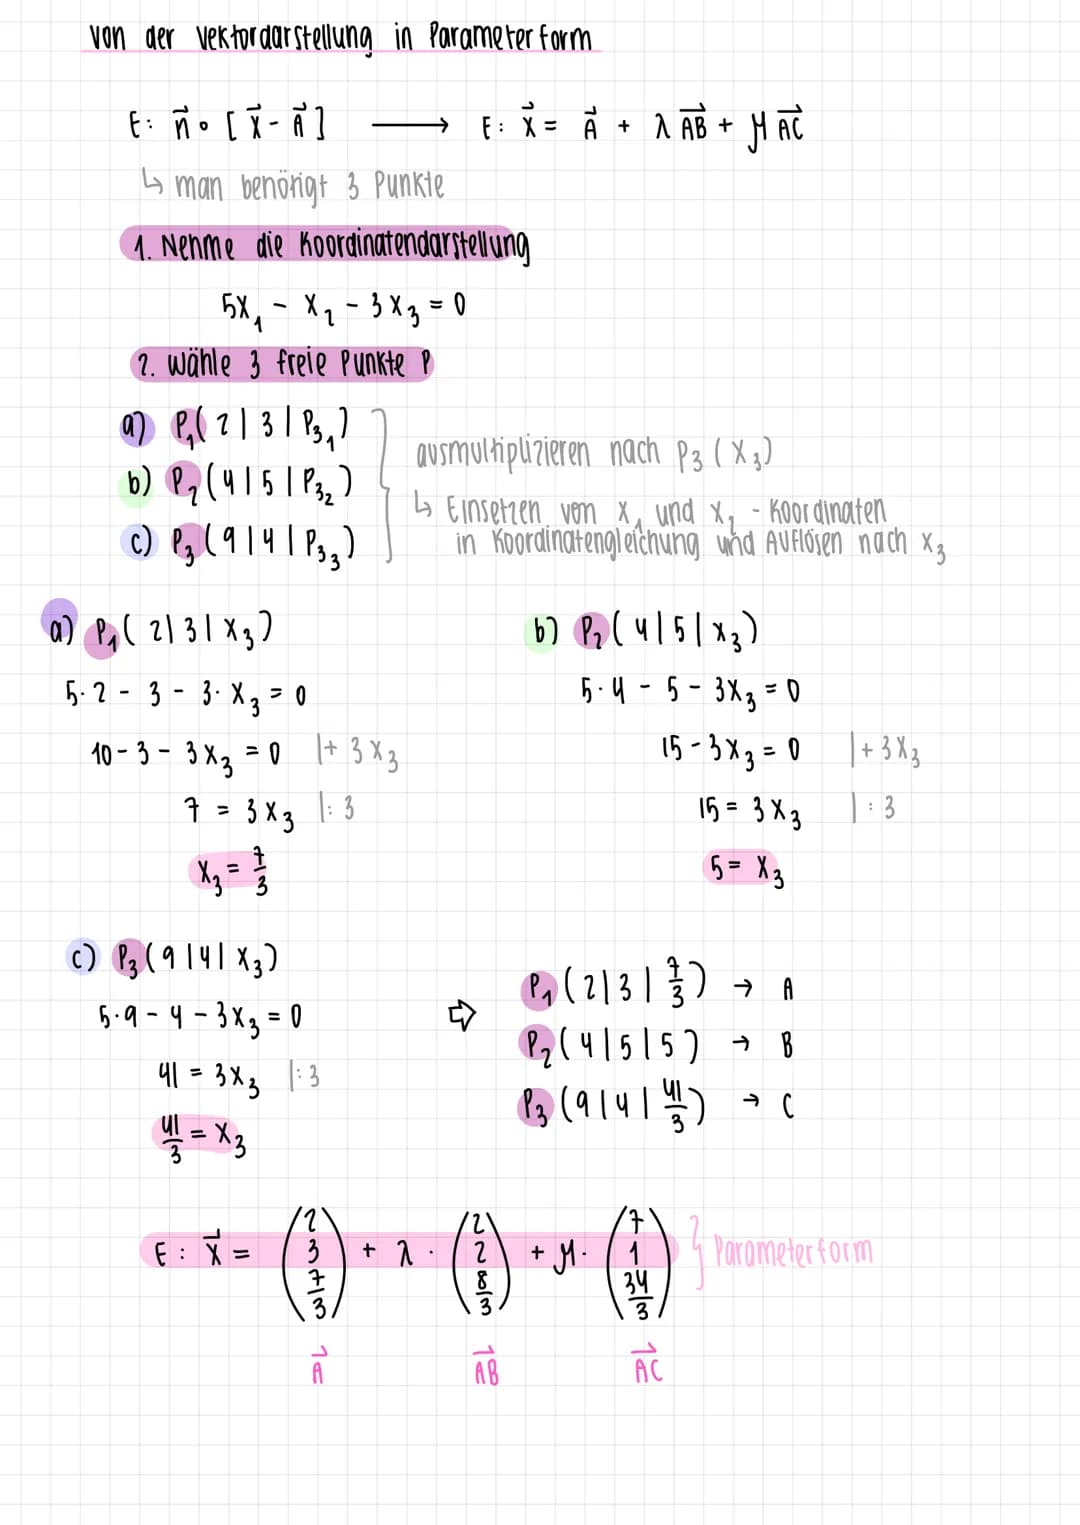 von der Vektordarstellung in Parameterform
E: n⃗ ∘ [x⃗ - A⃗] ⟶ E: x⃗ = A⃗ + λ AB⃗ + μ AC⃗
↳ man benötigt 3 Punkte
1. Nehme die Koordinatendarstellung
5x₁ - x₂ - 3x₃ = 0
2. wähle 3 freie Punkte P
a) P₁(2|3|P₃₁)
b) P₂(4|5|P₃₂)
c) P₃(9|4|P₃₃)
ausmultiplizieren nach P₃ (x₃)
↳ Einsetzen von x₁ und x₂ - Koordinaten
in Koordinatengleichung und Auflösen nach x₃
a) P₁(2|3|x₃)
5·2 - 3 - 3·x₃ = 0
10 - 3 - 3x₃ = 0 |+ 3x₃
7 = 3x₃ |:3
x₃ = 7/3
b) P₂(4|5|x₃)
5·4 - 5 - 3x₃ = 0
15 - 3x₃ = 0 |+ 3x₃
15 = 3x₃ |:3
5 = x₃
c) P₃(9|4|x₃)
5·9 - 4 - 3x₃ = 0
41 = 3x₃ |:3
41/3 = x₃
⇨ P₁(2|3|7/3) → A
P₂(4|5|5) → B
P₃(9|4|41/3) → C
E: x⃗ = (2 3 7/3) + λ · (2 2 8/3) + μ · (7 1 34/3) } Parameterform
A⃗ AB⃗ AC⃗